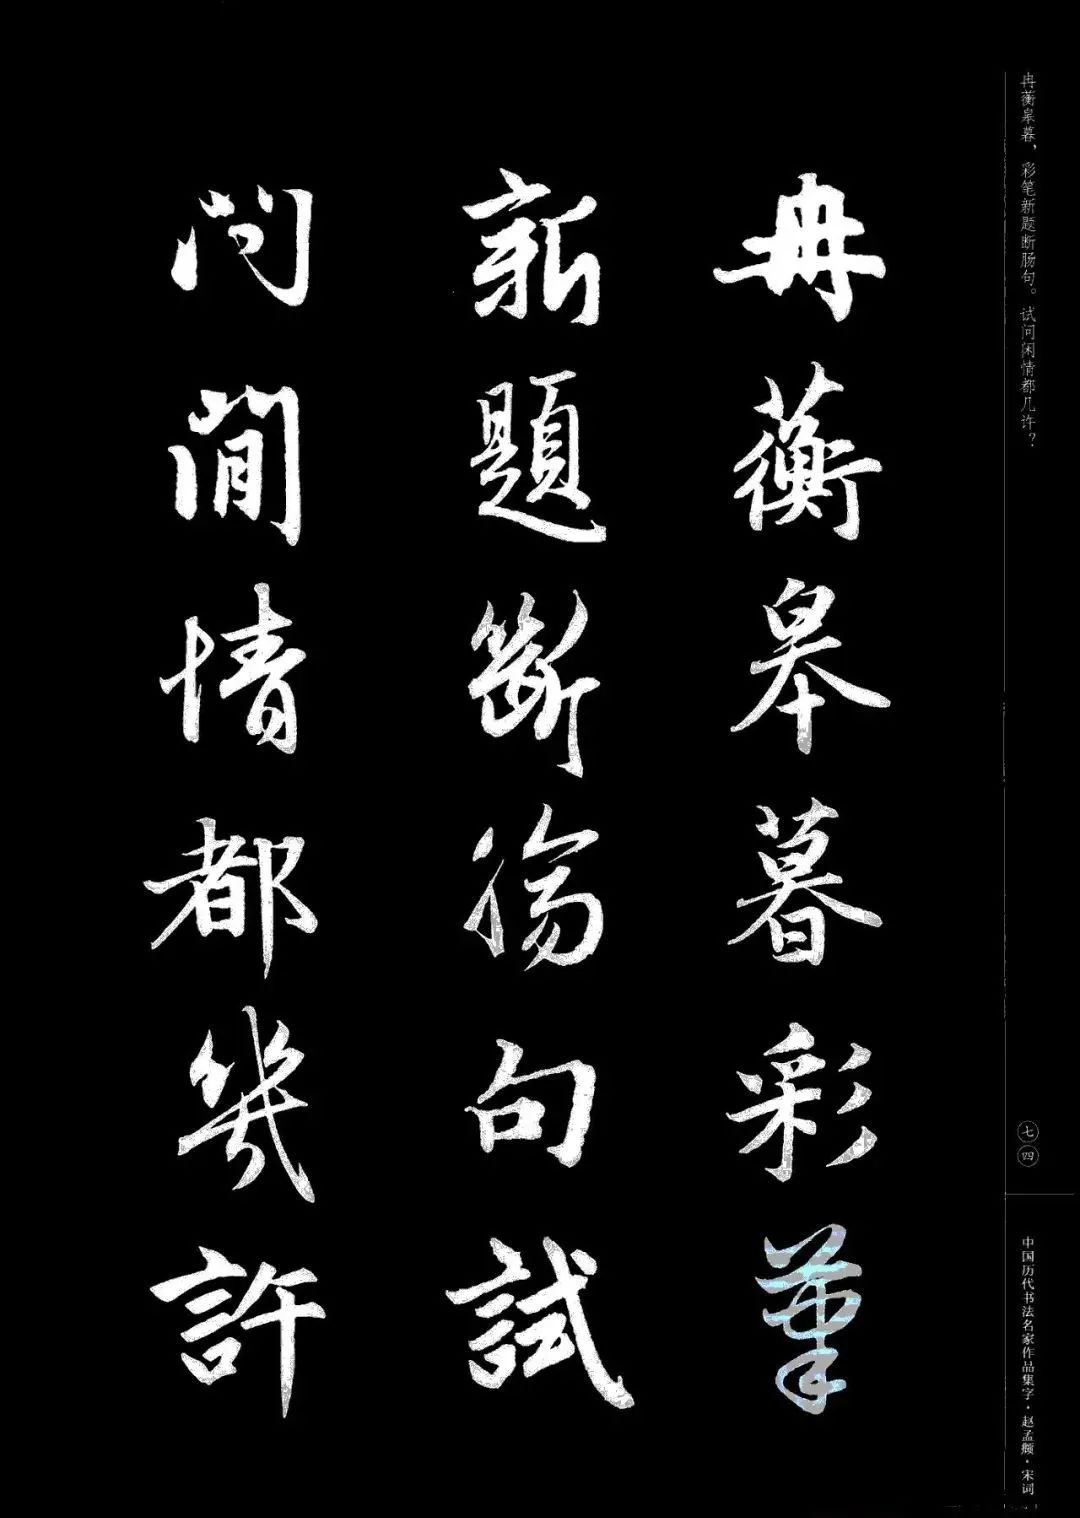 冉蘅皋暮，彩笔新题断肠句。试问闲情都几许？
冉蘅皋暮彩筆
新題斷腸句試
問閒情都幾許
七四
中国历代书法名家作品集字·赵孟頫·宋词